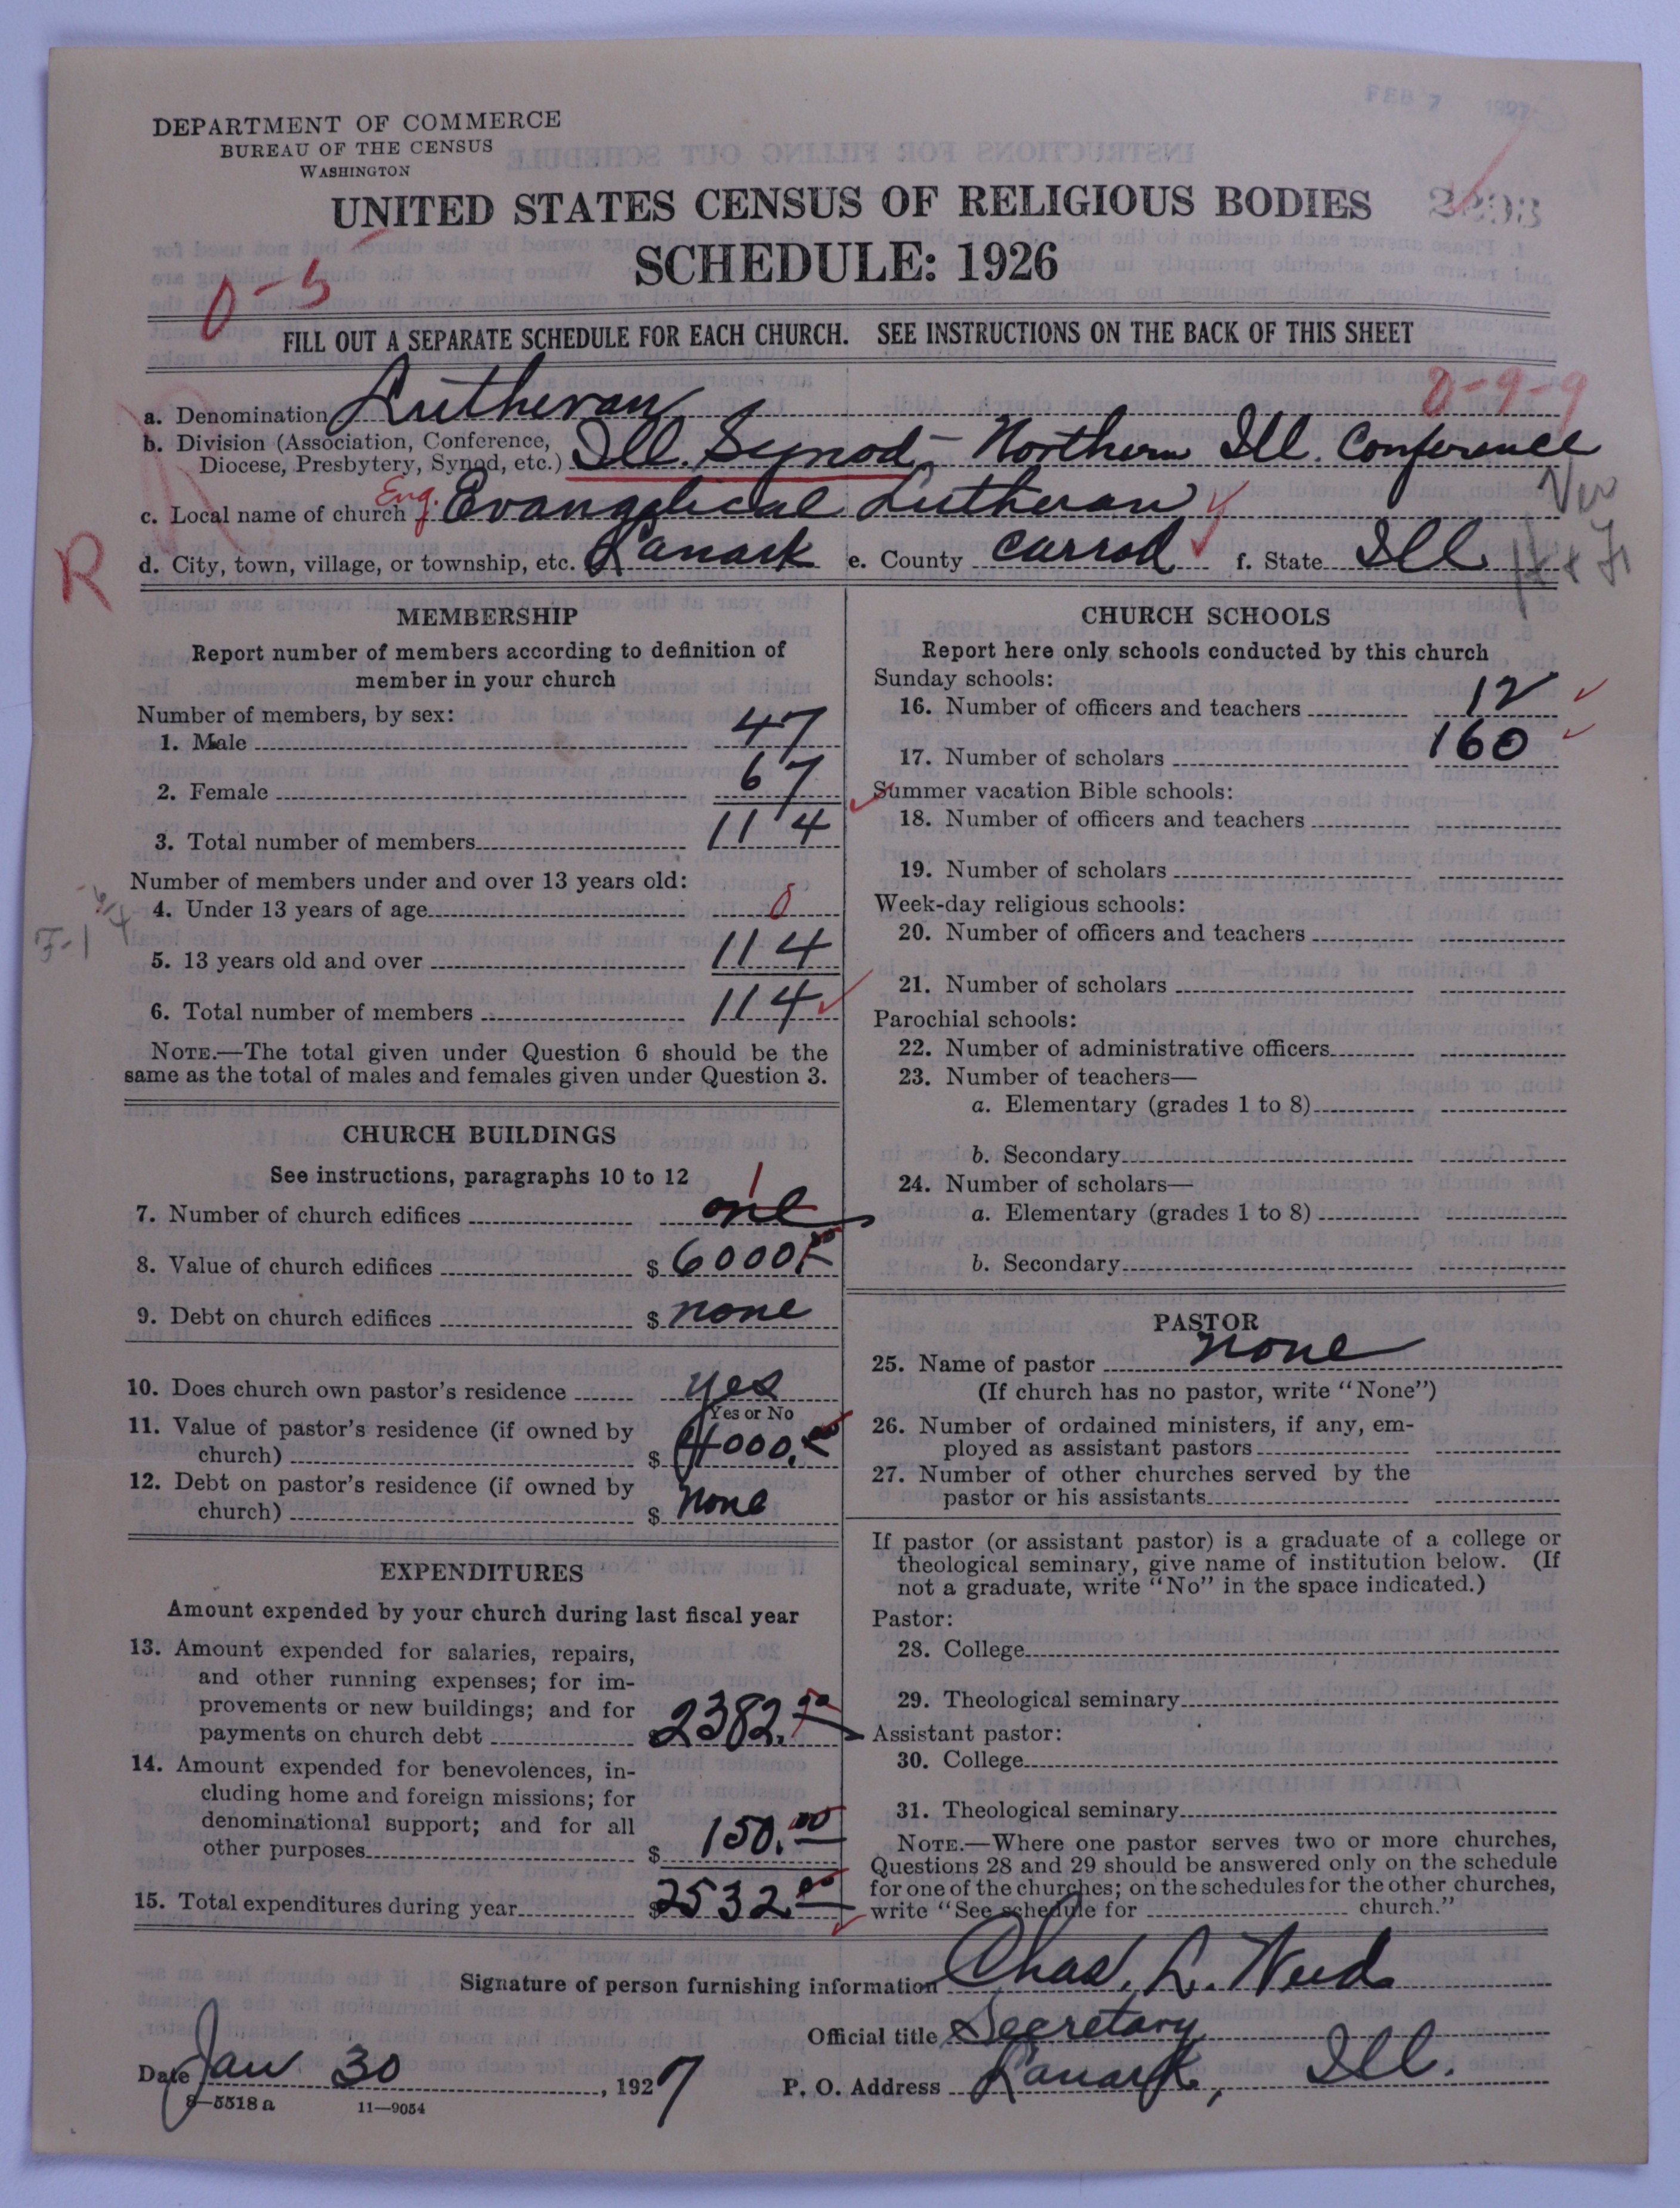 FEB 7 1927
DEPARTMENT OF COMMERCE
BUREAU OF THE CENSUS
WASHINGTON
UNITED STATES CENSUS OF RELIGIOUS BODIES
2293
SCHEDULE: 1926
0-5
FILL OUT A SEPARATE SCHEDULE FOR EACH CHURCH. SEE INSTRUCTIONS ON THE BACK OF THIS SHEET
0-9-9
a. Denomination Lutheran
b. Division (Association, Conference,
Diocese, Presbytery, Synod, etc.) Ill. Synod - Northern Ill. Conference
c. Local name of church Eng. Evangelical Lutheran
R
d. City, town, village, or township, etc. Lanark e. County Carroll f. State Ill.
MEMBERSHIP
Report number of members according to definition of
member in your church
Number of members, by sex:
1. Male 47
2. Female 67
3. Total number of members 114
Number of members under and over 13 years old:
4. Under 13 years of age 0
5. 13 years old and over 114
F-1
6. Total number of members 114
NOTE.—The total given under Question 6 should be the
same as the total of males and females given under Question 3.
CHURCH BUILDINGS
See instructions, paragraphs 10 to 12
1
7. Number of church edifices one
8. Value of church edifices $ 6000.00
9. Debt on church edifices $ none
10. Does church own pastor's residence yes
Yes or No
11. Value of pastor's residence (if owned by
church) $ 4000.00
12. Debt on pastor's residence (if owned by
church) $ none
EXPENDITURES
Amount expended by your church during last fiscal year
13. Amount expended for salaries, repairs,
and other running expenses; for im-
provements or new buildings; and for
payments on church debt $ 2382.50
14. Amount expended for benevolences, in-
cluding home and foreign missions; for
denominational support; and for all
other purposes $ 150.00
15. Total expenditures during year $ 2532.00
CHURCH SCHOOLS
Report here only schools conducted by this church
Sunday schools:
16. Number of officers and teachers 12
17. Number of scholars 160
Summer vacation Bible schools:
18. Number of officers and teachers
19. Number of scholars
Week-day religious schools:
20. Number of officers and teachers
21. Number of scholars
Parochial schools:
22. Number of administrative officers
23. Number of teachers—
a. Elementary (grades 1 to 8)
b. Secondary
24. Number of scholars—
a. Elementary (grades 1 to 8)
b. Secondary
PASTOR
25. Name of pastor none
(If church has no pastor, write "None")
26. Number of ordained ministers, if any, em-
ployed as assistant pastors
27. Number of other churches served by the
pastor or his assistants
If pastor (or assistant pastor) is a graduate of a college or
theological seminary, give name of institution below. (If
not a graduate, write "No" in the space indicated.)
Pastor:
28. College
29. Theological seminary
Assistant pastor:
30. College
31. Theological seminary
NOTE.—Where one pastor serves two or more churches,
Questions 28 and 29 should be answered only on the schedule
for one of the churches; on the schedules for the other churches,
write "See schedule for church."
Signature of person furnishing information Chas. L.
Official title Secretary
Date Jan 30, 1927 P. O. Address Lanark, Ill.
8—5518a 11—9054